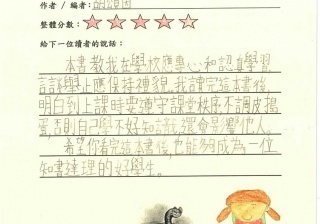 作者 / 編者:胡頌茵
整體分數:
給下一位讀者的說話:
本書教我在學校應專心和認真學習,
言談舉止應保持禮貌。我讀完這本書後,
明白到上課時要遵守課堂秩序,不調皮搗
蛋,否則自己學不好知識,還會影響他人。
希望你看完這本書後,也能夠成為一位
知書達理的好學生。